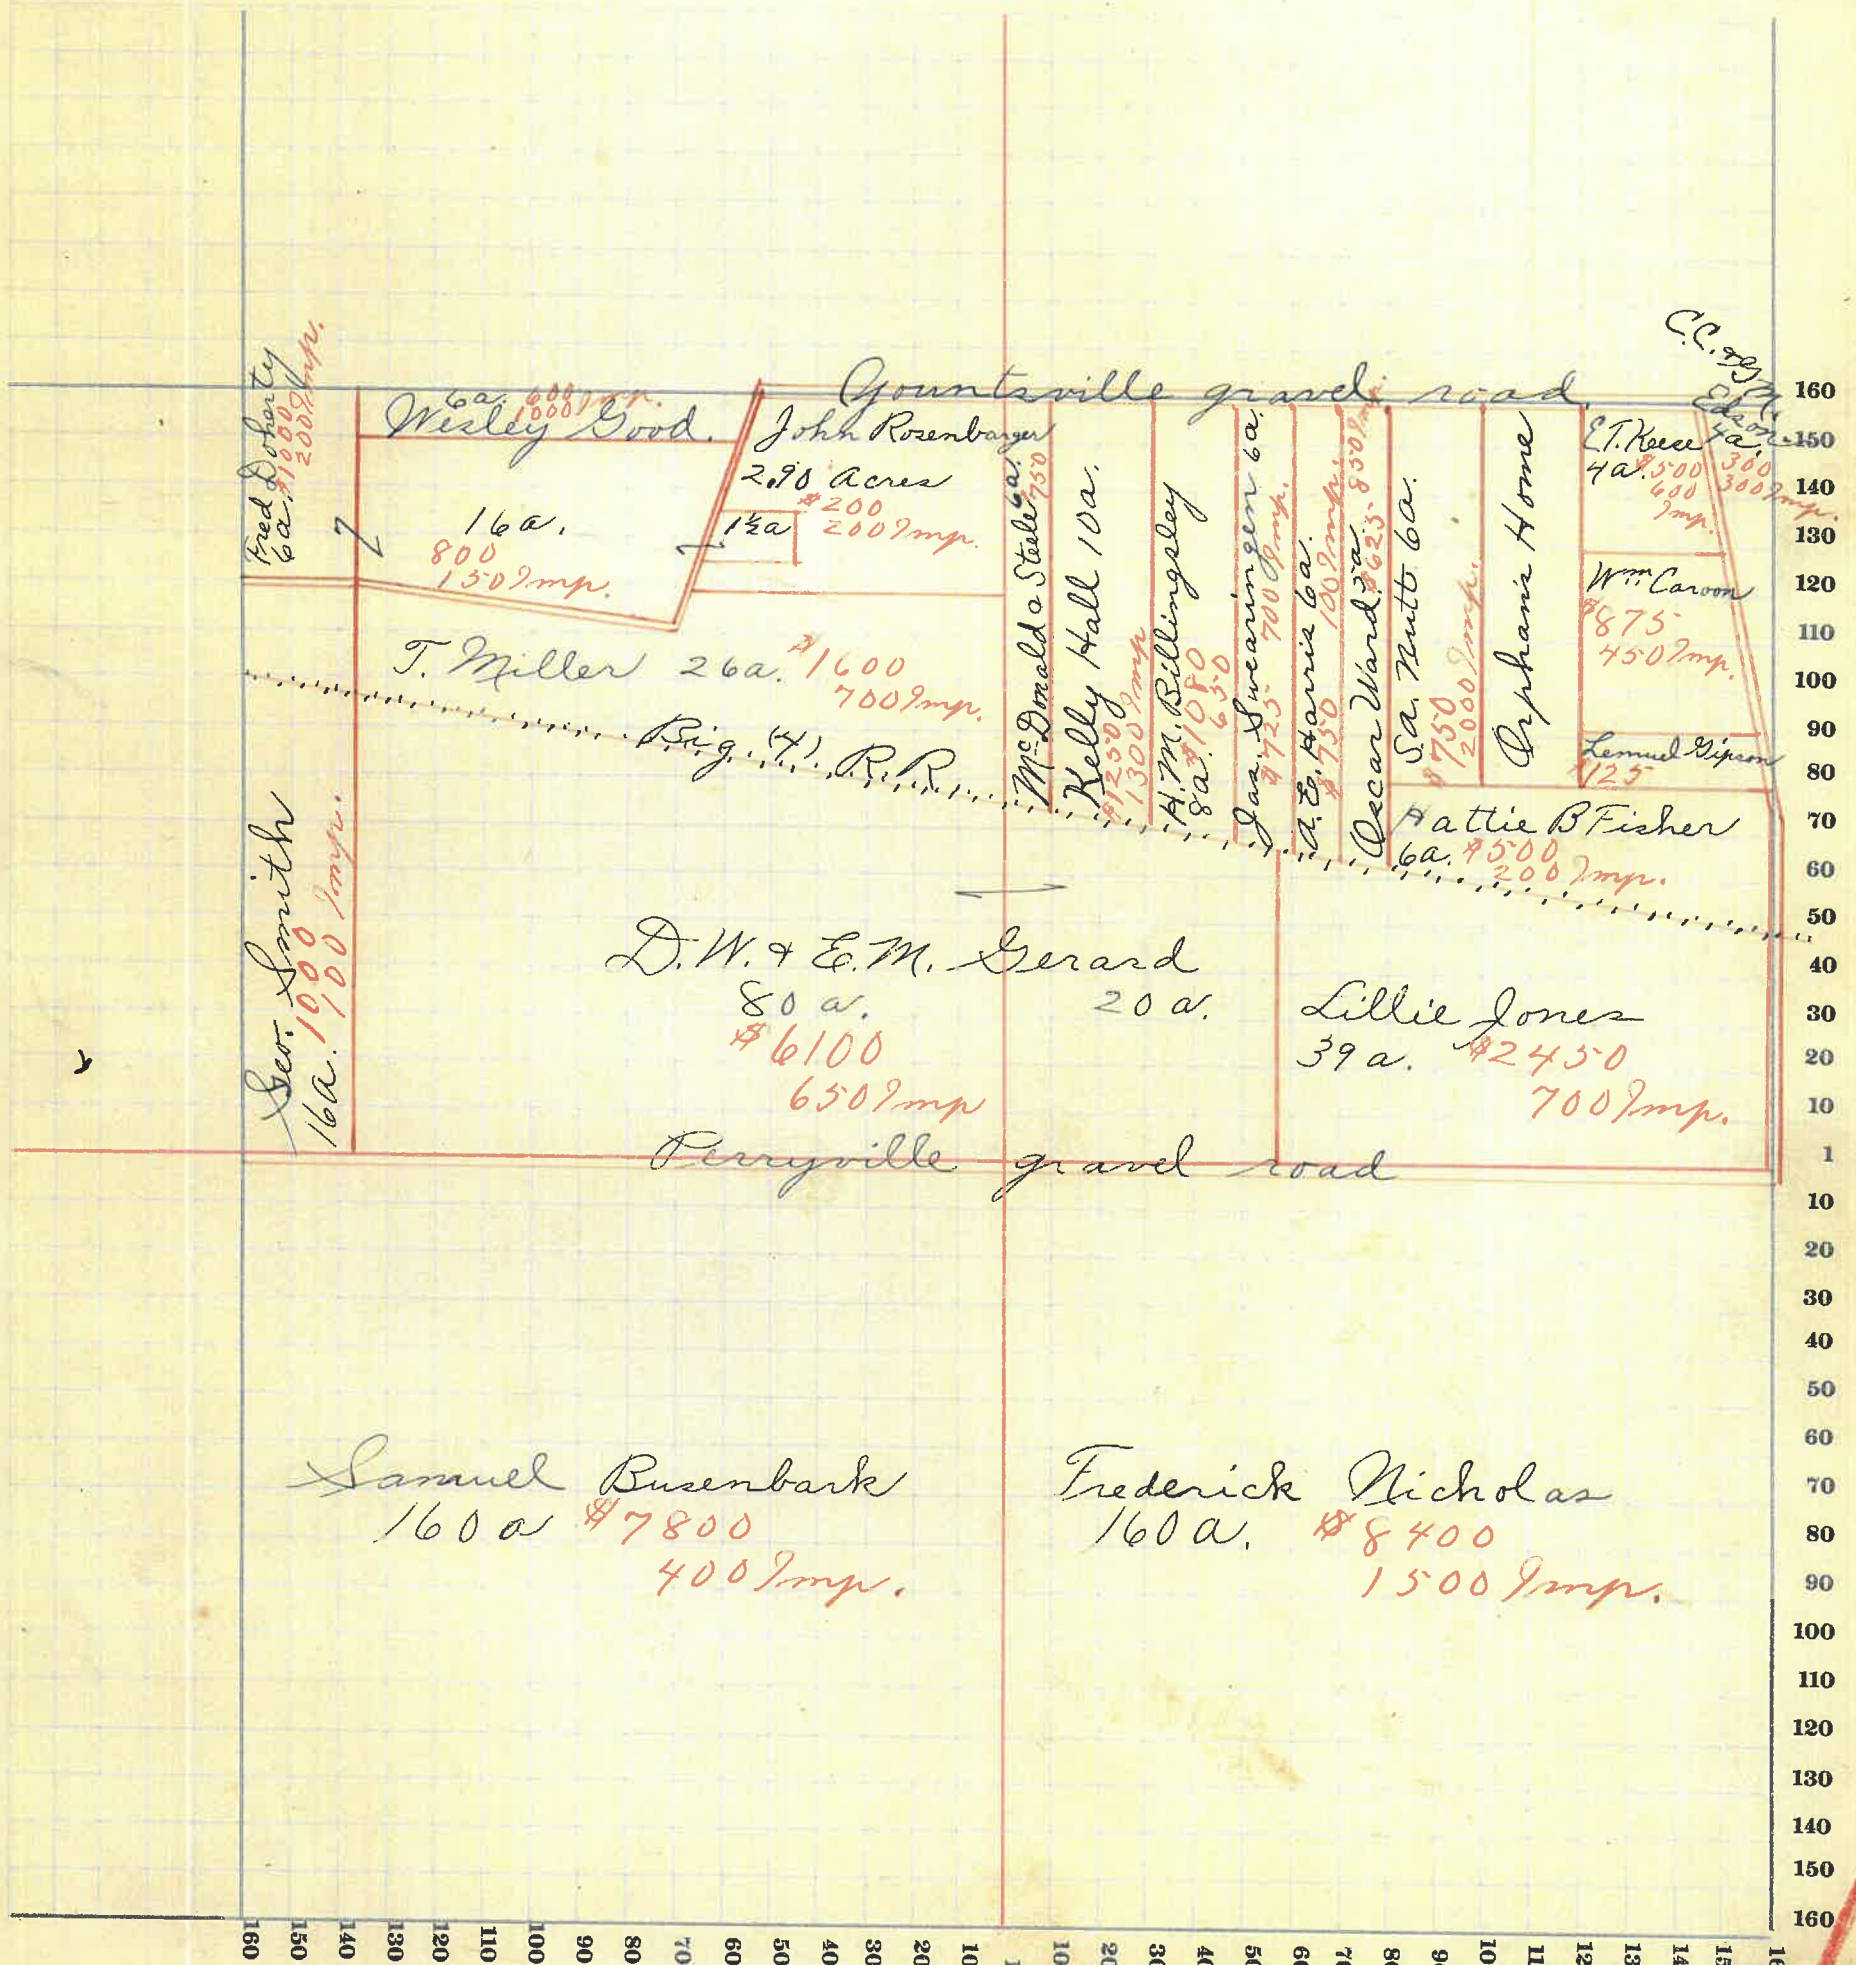 C.C. & G. R.
Yountsville gravel road.
Edson
4a.
300
300 Imp.
Fred Doherty
6a. $1000
200 Imp.
6a. 600
1000 Imp.
Wesley Good.
16a.
800
150 Imp.
John Rosenbarger
2.90 Acres
$200
200 Imp.
1½a
McDonald & Steele 6a. 750
Kelly Hall 10a.
$1250
1300 Imp
H. M. Billingsley
8a. $1080
650
Jas. Swearingen 6a.
$725 700 Imp.
A. E. Harris 6a.
$750 100 Imp.
Oscar Ward. 5a.
$625 850 Imp.
S.A. Nutt 6a.
$750
2000 Imp.
Orphans Home
E.T. Keese
4a. $500
600
Imp.
Wm. Caroon
$875
450 Imp.
Lemuel Gipson
$125
T. Miller 26a. $1600
700 Imp.
Big (4) R.R.
Hattie B Fisher
6a. $500
200 Imp.
Geo. Smith
16a. 1000
100 Imp.
D.W. & E.M. Gerard
80 a. 20 a.
$6100
650 Imp
Lillie Jones
39 a. $2450
700 Imp.
Perryville gravel road
Samuel Busenbark
160 a $7800
400 Imp.
Frederick Nicholas
160 a. $8400
1500 Imp.
160
150
140
130
120
110
100
90
80
70
60
50
40
30
20
10
1
10
20
30
40
50
60
70
80
90
100
110
120
130
140
150
160
160 150 140 130 120 110 100 90 80 70 60 50 40 30 20 10 1 10 20 30 40 50 60 70 80 90 10 11 12 13 14 15 16